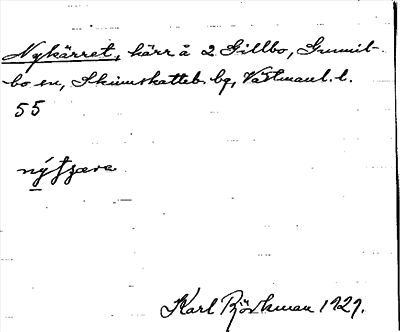 Nykärret, kärr å 2 Gillbo, Gunnil-
bo sn, Skinnskatteb. bg, Västmanl. l.
55
Karl Björkman 1929.